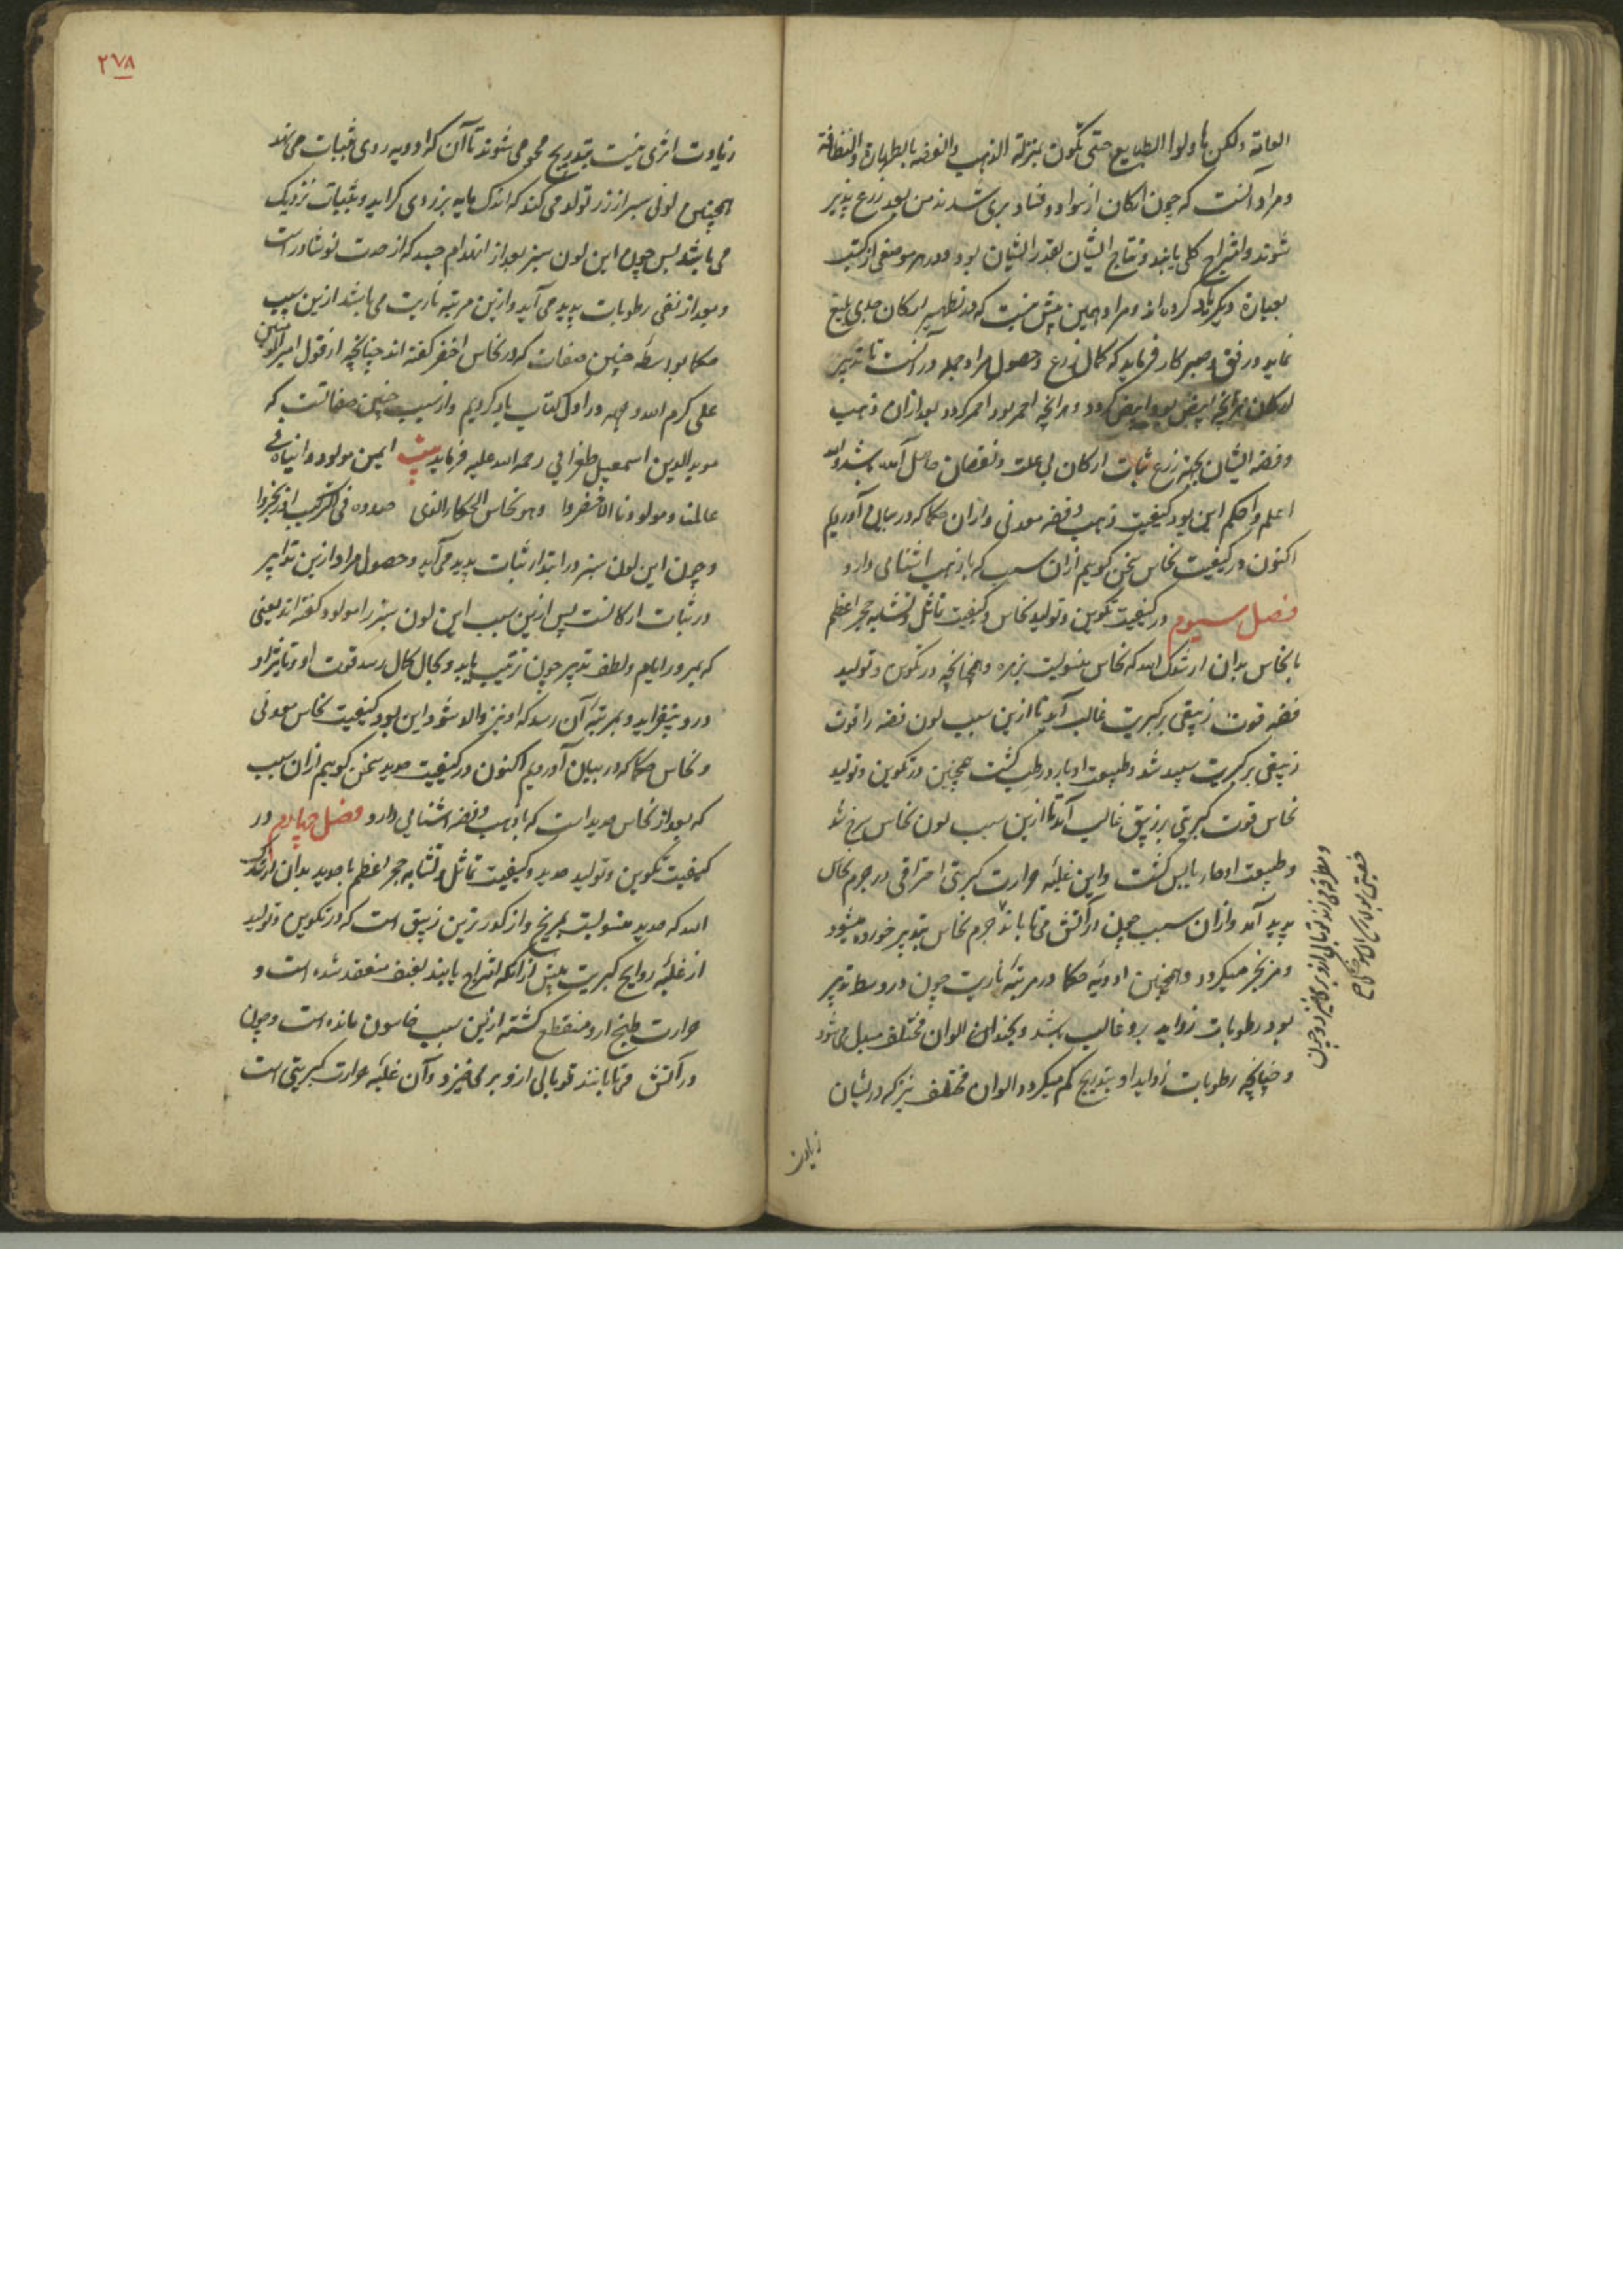 العامة ولكن حتى تكون بمنزلة الذهب والفضة بالطهارة والنظافة
ومراد آنست که چون ارکان از سواد و فساد بری شدند من بعد زرع پذیر
شوند و امتزاج کلی یابند و نتاج ایشان بقدر ایشان بود و در هر موضعی از کتب
بعبارة دیگر یاد کرده اند و مراد همین بیش نیست که در تطهیر ارکان جدی بلیغ
نماید و رفق و صبر کار فرماید که کمال زرع و حصول مراد جمله در آنست تا تدبیر
ارکان هر آنچه ابیض بود ابیض گردد و هر آنچه احمر بود احمر گردد بعد از آن ذهب
و فضه ایشان بجهة زرع ثبات ارکان بی علت و نقصان حاصل آمده باشد والله
اعلم واحکم این بود کیفیت ذهب و فضه معدنی و از آن حکما که در بیان آوردیم
اکنون در کیفیت نحاس سخن گوییم از آن سبب که با ذهب آشنائی دارد
فصل سیوم در کیفیت تکوین و تولید نحاس و کیفیت تماثل و تشابه حجر اعظم
با نحاس بدان ارشدک الله که نحاس منسوبست بزهره و همچنانچه در تکوین و تولید
فضه قوت زیبقی بر کبریت غالب آمد تا ازین سبب لون فضه را قوت
زیبقی بر کبریت سپید شد و طبیعت او بارد رطب گشت همچنین در تکوین و تولید
نحاس قوت کبریتی بر زیبق غالب آمد تا ازین سبب لون نحاس سرخ شد
و طبیعت او حار یابس گشت و این غلبه حرارت کبریتی احتراقی در جرم نحاس
پدید آمد و از آن سبب چون در آتش می تابانند جرم نحاس بتدبیر خورده میشود
و مزنجر میگردد و همچنین ادویه حکما در مرتبه ناریت چون در وسط تدبیر
بود رطوبات زواید برو غالب باشد و بچندان الوان مختلف مبدل می شود
و چنانچه رطوبات زواید او بتدریج کم میگردد الوان مختلف نیز که در ایشان
زیادت
۲۷۸
زیادت اثری نیست بتدریج محو می شوند تا آن که ادویه روی بثبات می نهد
همچنین لونی سبز از زر تولد می کند که اندک مایه بزردی گراید و بثبات نزدیک
می باشد پس چون این لون سبز بعد از انهدام جسد که از حدت نوشادر است
و بعد از نفی رطوبات پدید می آید و ازین مرتبه ناریت می باشد ازین سبب
حکما بواسطه چنین صفات که در نحاس اخضر گفته اند چنانچه از قول امیر المؤمنین
علی کرم الله وجهه در اول کتاب یاد کردیم و از سبب چنین صفاتست که
موید الدین اسمعیل طغرائی رحمة الله علیه فرماید بیت مولود و انیاه فی
عالمنا ومولودنا الاخضروا وهو نحاس الحکماء الذی
و چون این لون سبز در ابتداء ثبات پدید می آید و حصول مراد ازین تدابیر
در ثبات ارکانست پس ازین سبب این لون سبز را مولود گفته اند یعنی
که بمرور ایام و لطف تدبیر چون ترتیب یابد و بکمال رسد قوت او و تاثیر او
در وی بیفزاید و بمرتبه آن رسد که او نیز والد شود این بود کیفیت نحاس معدنی
و نحاس حکما که در بیان آوردیم اکنون در کیفیت حدید سخن گوییم از آن سبب
که بعد از نحاس حدید است که با ذهب و فضه آشنایی دارد فصل چهارم در
کیفیت تکوین و تولید حدید و کیفیت تماثل و تشابه حجر اعظم با حدید بدان ارشدک
الله که حدید منسوبست بمریخ و از کدرترین زیبق است که در تکوین و تولید
از غلبه روایح کبریت پیش از آنکه امتزاج یابند بعنف منعقد شده است و
حرارت طبخ ازو منقطع گشته ازین سبب خام مانده است و چون
در آتش می تابانند توبالی ازو بر می خیزد و آن غلبه حرارت کبریتی است